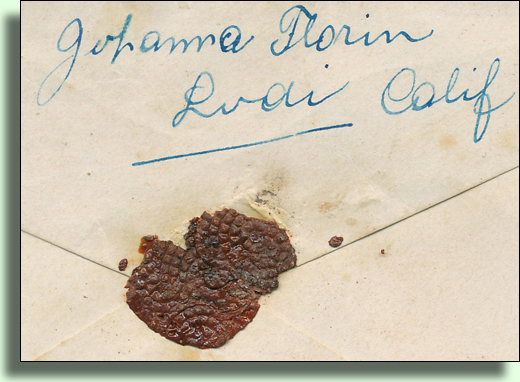 Johanna Florin
Lodi Calif